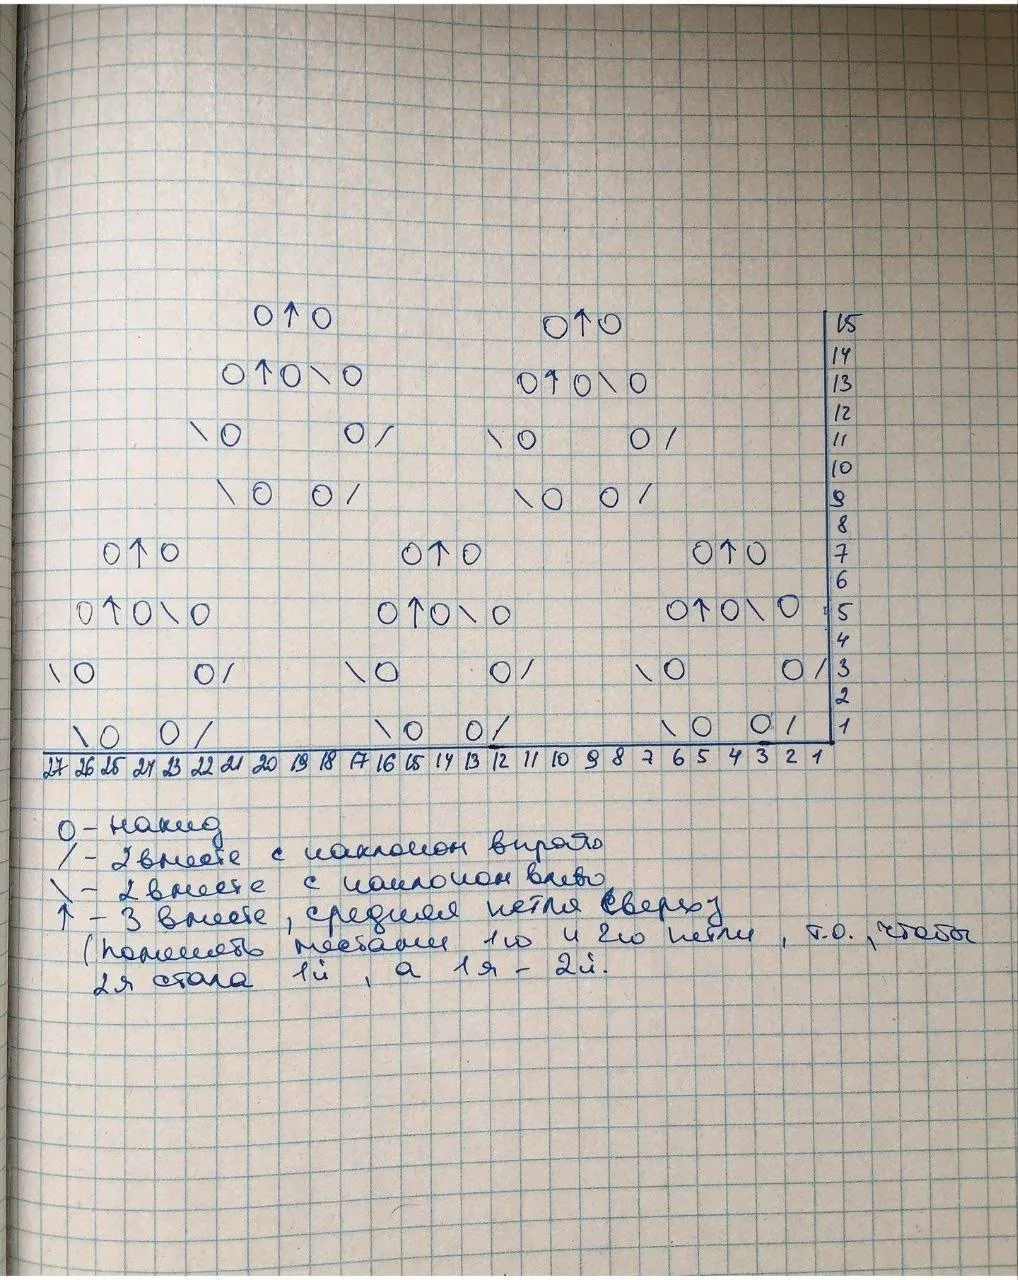 O ↑ O O ↑ O 15
14
O ↑ O \ O O ↑ O \ O 13
12
\ O O / \ O O / 11
10
\ O O / \ O O / 9
8
O ↑ O O ↑ O O ↑ O 7
6
O ↑ O \ O O ↑ O \ O O ↑ O \ O 5
4
\ O O / \ O O / \ O O / 3
2
\ O O / \ O O / \ O O / 1
27 26 25 24 23 22 21 20 19 18 17 16 15 14 13 12 11 10 9 8 7 6 5 4 3 2 1
O - накид
/ - 2 вместе с наклоном вправо
\ - 2 вместе с наклоном влево
↑ - 3 вместе, средняя петля сверху
(поменять местами 1ю и 2ю петли, т.о., чтобы
2я стала 1й, а 1я - 2й.